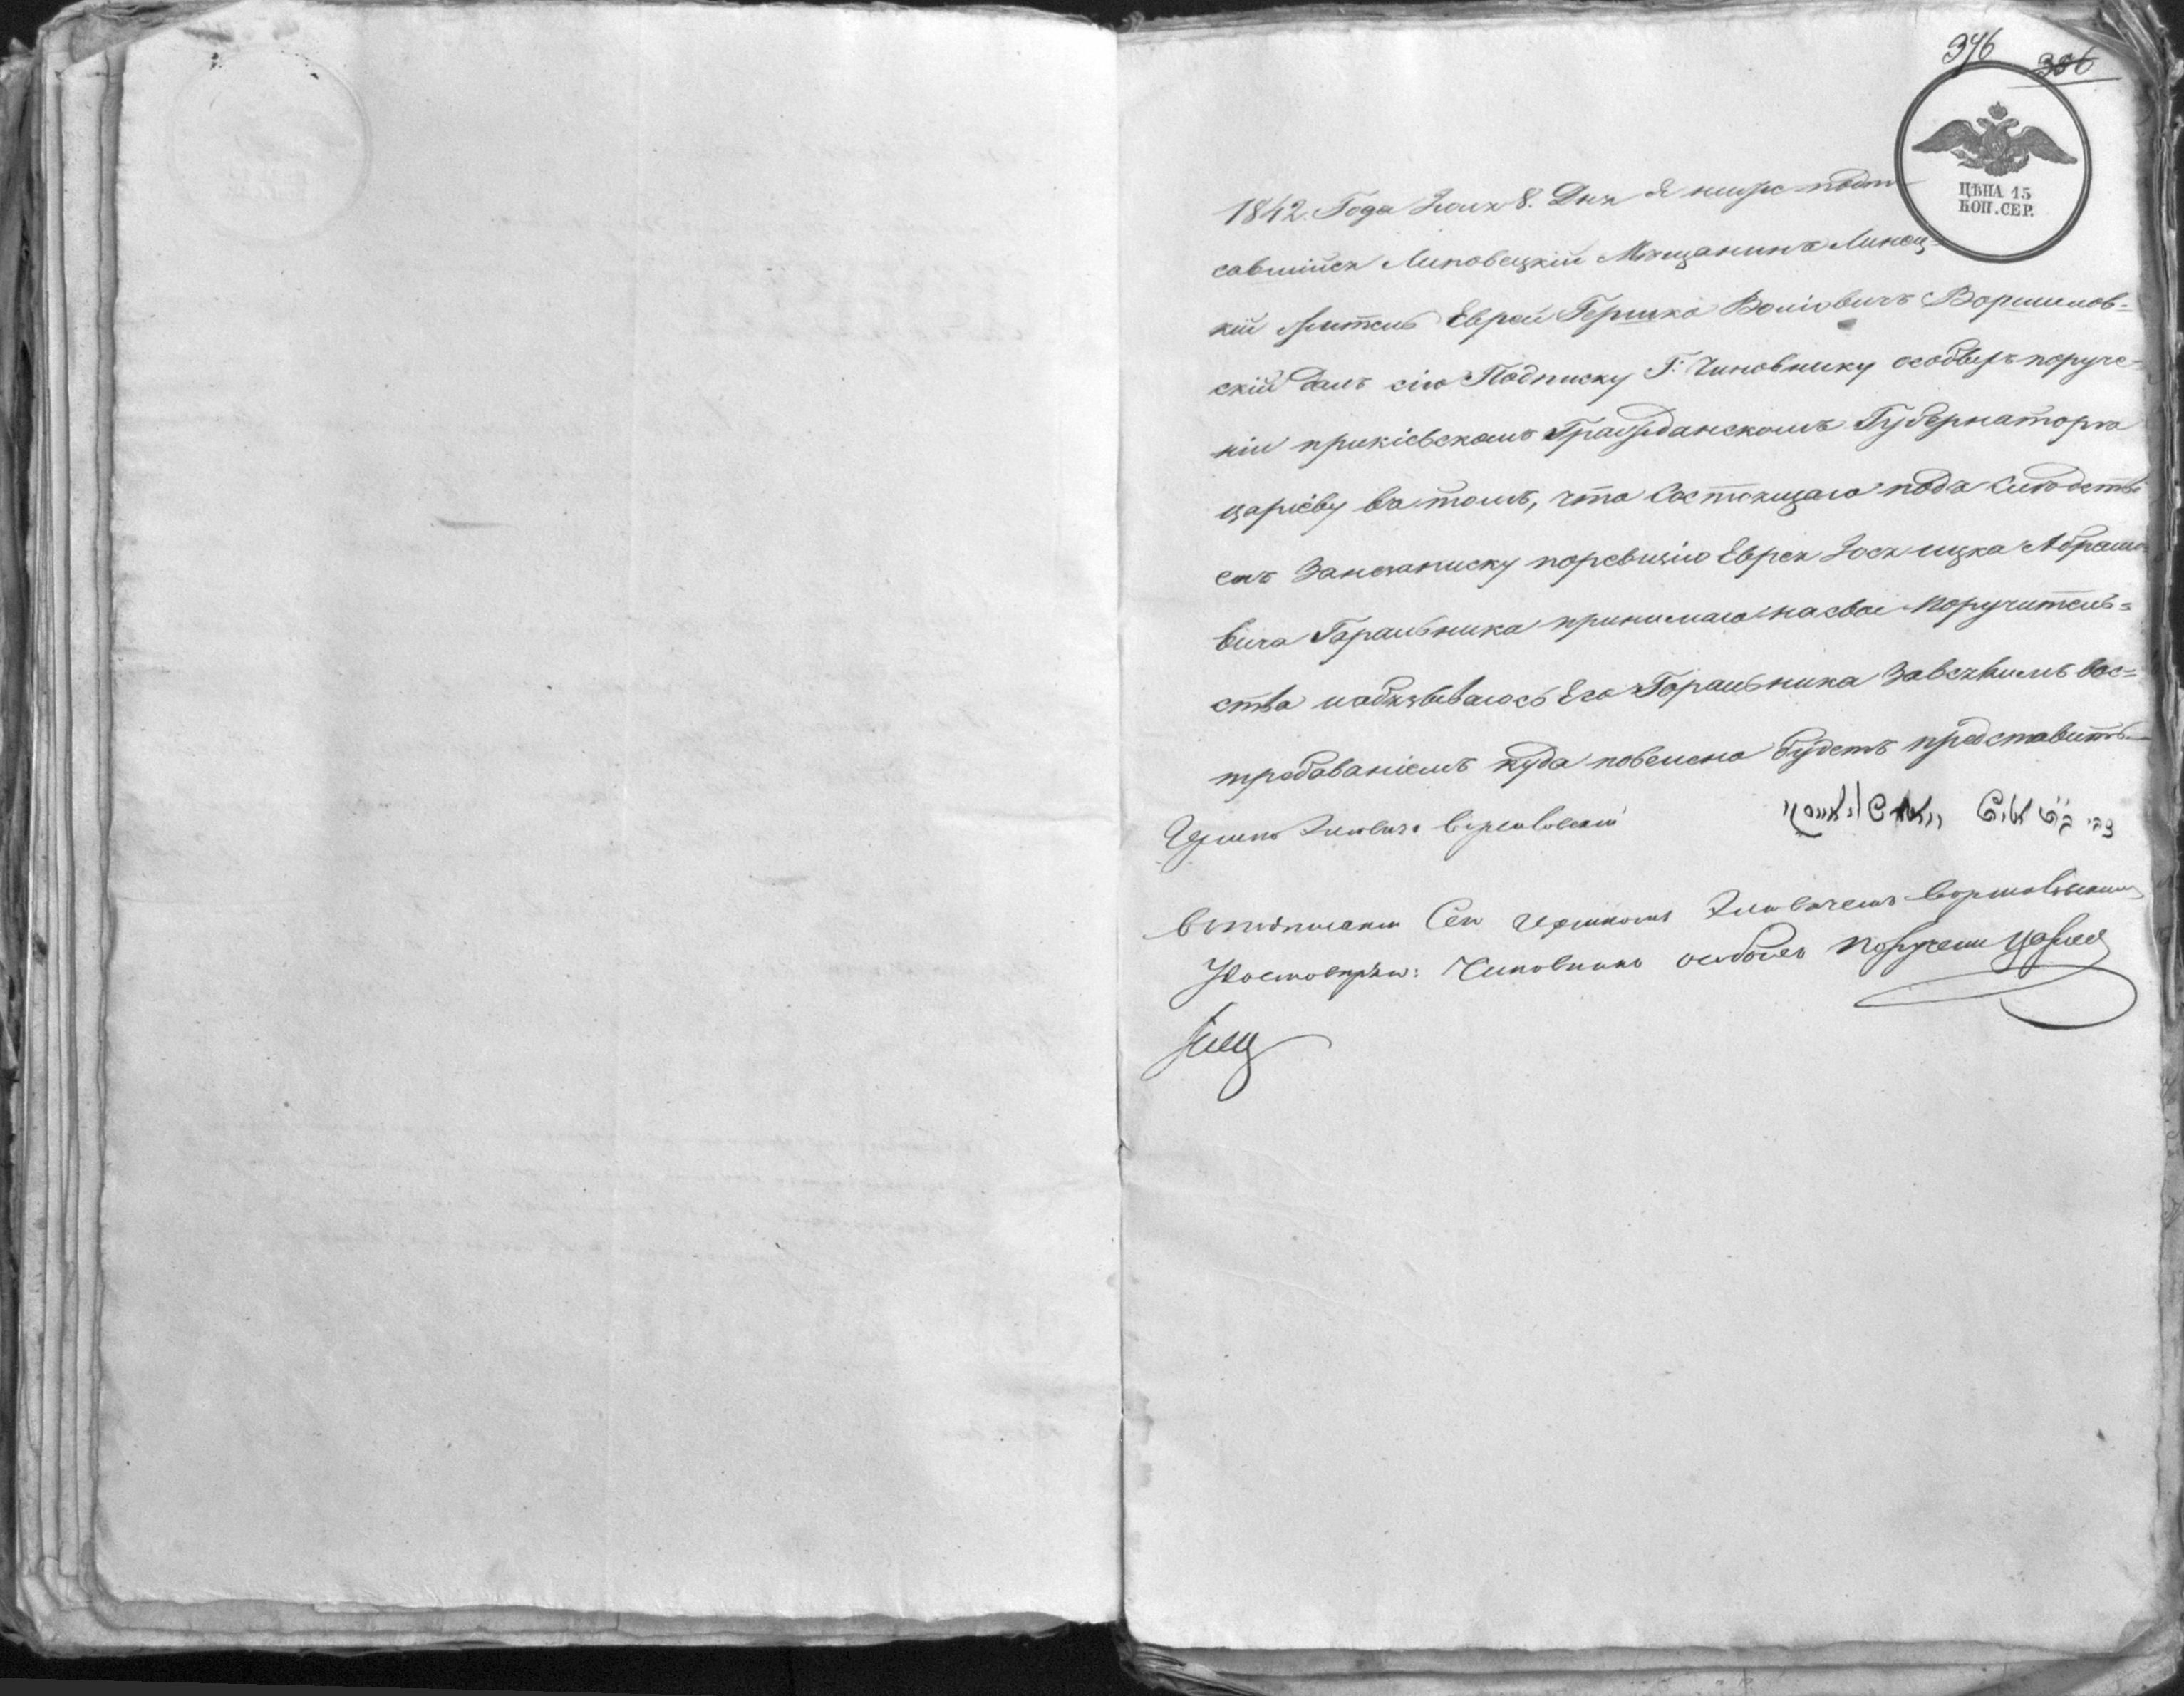 376 386
ЦѢНА 15
КОП. СЕР.
1842. Года Іюля 8. Дня Я ниже подпи-
савшійся Липовецкій Мѣщанинъ Линец-
кій житель Еврей Гершко Волковичъ Воршилов-
скій далъ сію Подписку Г: Чиновнику особыхъ поруче-
ній прикіевскомъ Гражданскомъ Губернаторѣ
царіеву въ томъ, что Состоящаго подъ слѣдстві
емъ За неваписку поревизію Еврея Іося ицка Абрамо-
вича Гаральника принимаю на свое поручитель=
ство иобязываюсь Его Горальника Завсякимъ вос=
требаваніемъ куда повелено будетъ представить.
Гершко Воршиловскій
צבי
Гершкомъ
Удостовѣряю: Чиновникъ особыхъ поручені Царіев